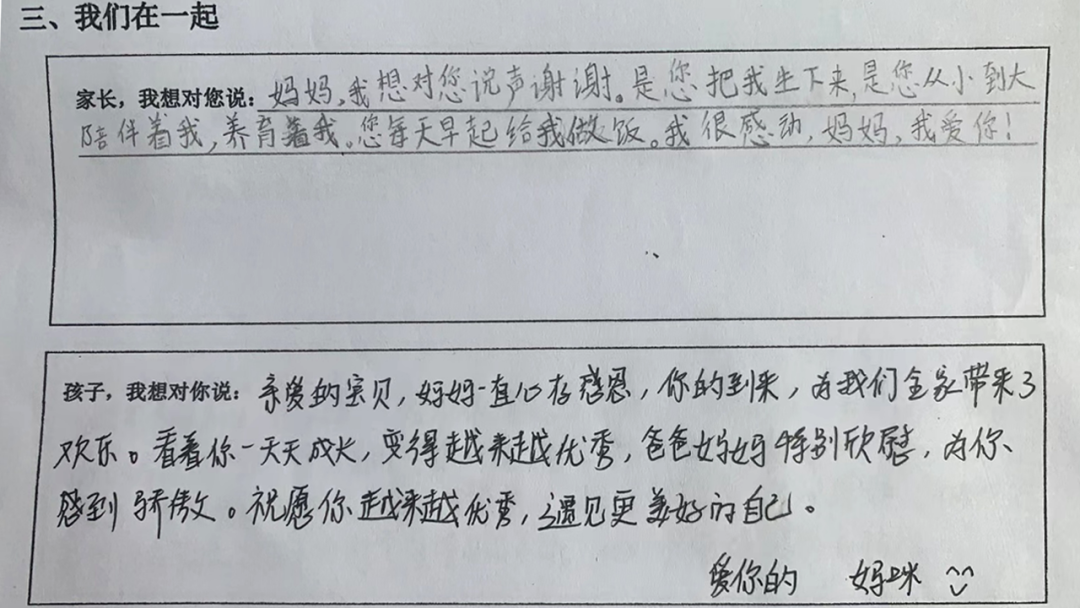 三、我们在一起
家长，我想对您说：妈妈，我想对您说声谢谢。是您把我生下来，是您从小到大
陪伴着我，养育着我。您每天早起给我做饭。我很感动，妈妈，我爱你！
孩子，我想对你说：亲爱的宝贝，妈妈一直心存感恩，你的到来，为我们全家带来了
欢乐。看着你一天天成长，变得越来越优秀，爸爸妈妈特别欣慰，为你
感到骄傲。祝愿你越来越优秀，遇见更美好的自己。
爱你的 妈咪